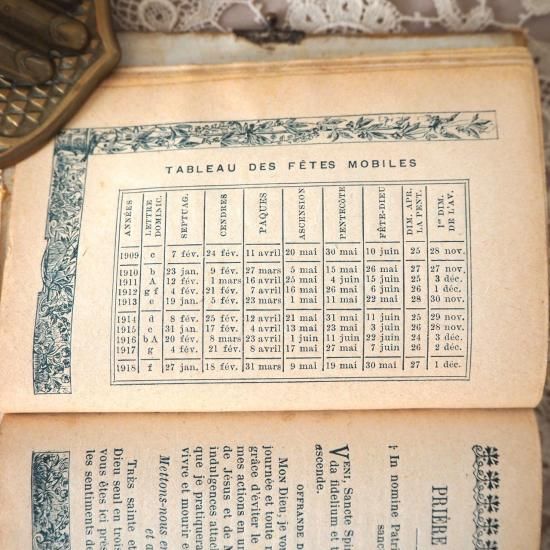 TABLEAU DES FÊTES MOBILES
ANNÉES LETTRE DOMINIC. SEPTUAG. CENDRES PAQUES ASCENSION PENTECÔTE FÊTE-DIEU DIM. APR. LA PENT. 1er DIM. DE L'AV.
1909 c 7 fév. 24 fév. 11 avril 20 mai 30 mai 10 juin 25 28 nov.
1910 b 23 jan. 9 fév. 27 mars 5 mai 15 mai 26 mai 27 27 nov.
1911 A 12 fév. 1 mars 16 avril 25 mai 4 juin 15 juin 25 3 déc.
1912 g f 4 fév. 21 fév. 7 avril 16 mai 26 mai 6 juin 26 1 déc.
1913 e 19 jan. 5 fév. 23 mars 1 mai 11 mai 22 mai 28 30 nov.
1914 d 8 fév. 25 fév. 12 avril 21 mai 31 mai 11 juin 25 29 nov.
1915 c 31 jan. 17 fév. 4 avril 13 mai 23 mai 3 juin 26 28 nov.
1916 b A 20 fév. 8 mars 23 avril 1 juin 11 juin 22 juin 24 3 déc.
1917 g 4 fév. 21 fév. 8 avril 17 mai 27 mai 7 juin 26 2 déc.
1918 f 27 jan. 13 fév. 31 mars 9 mai 19 mai 30 mai 27 1 déc.
PRIÈRE
† In nomine Patr
sanc
VENI, Sancte Spi
da fidelium et t
ascende.
OFFRANDE D
MON Dieu, je vo
journée et toute m
grâce d'éviter le
mes actions en
de Jésus et de M
indulgences attac
que je pratiquera
vivre et mourir e
Mettons-nous en
et a
TRÈS sainte et
Dieu seul en trois
vous êtes ici prés
les sentiments de